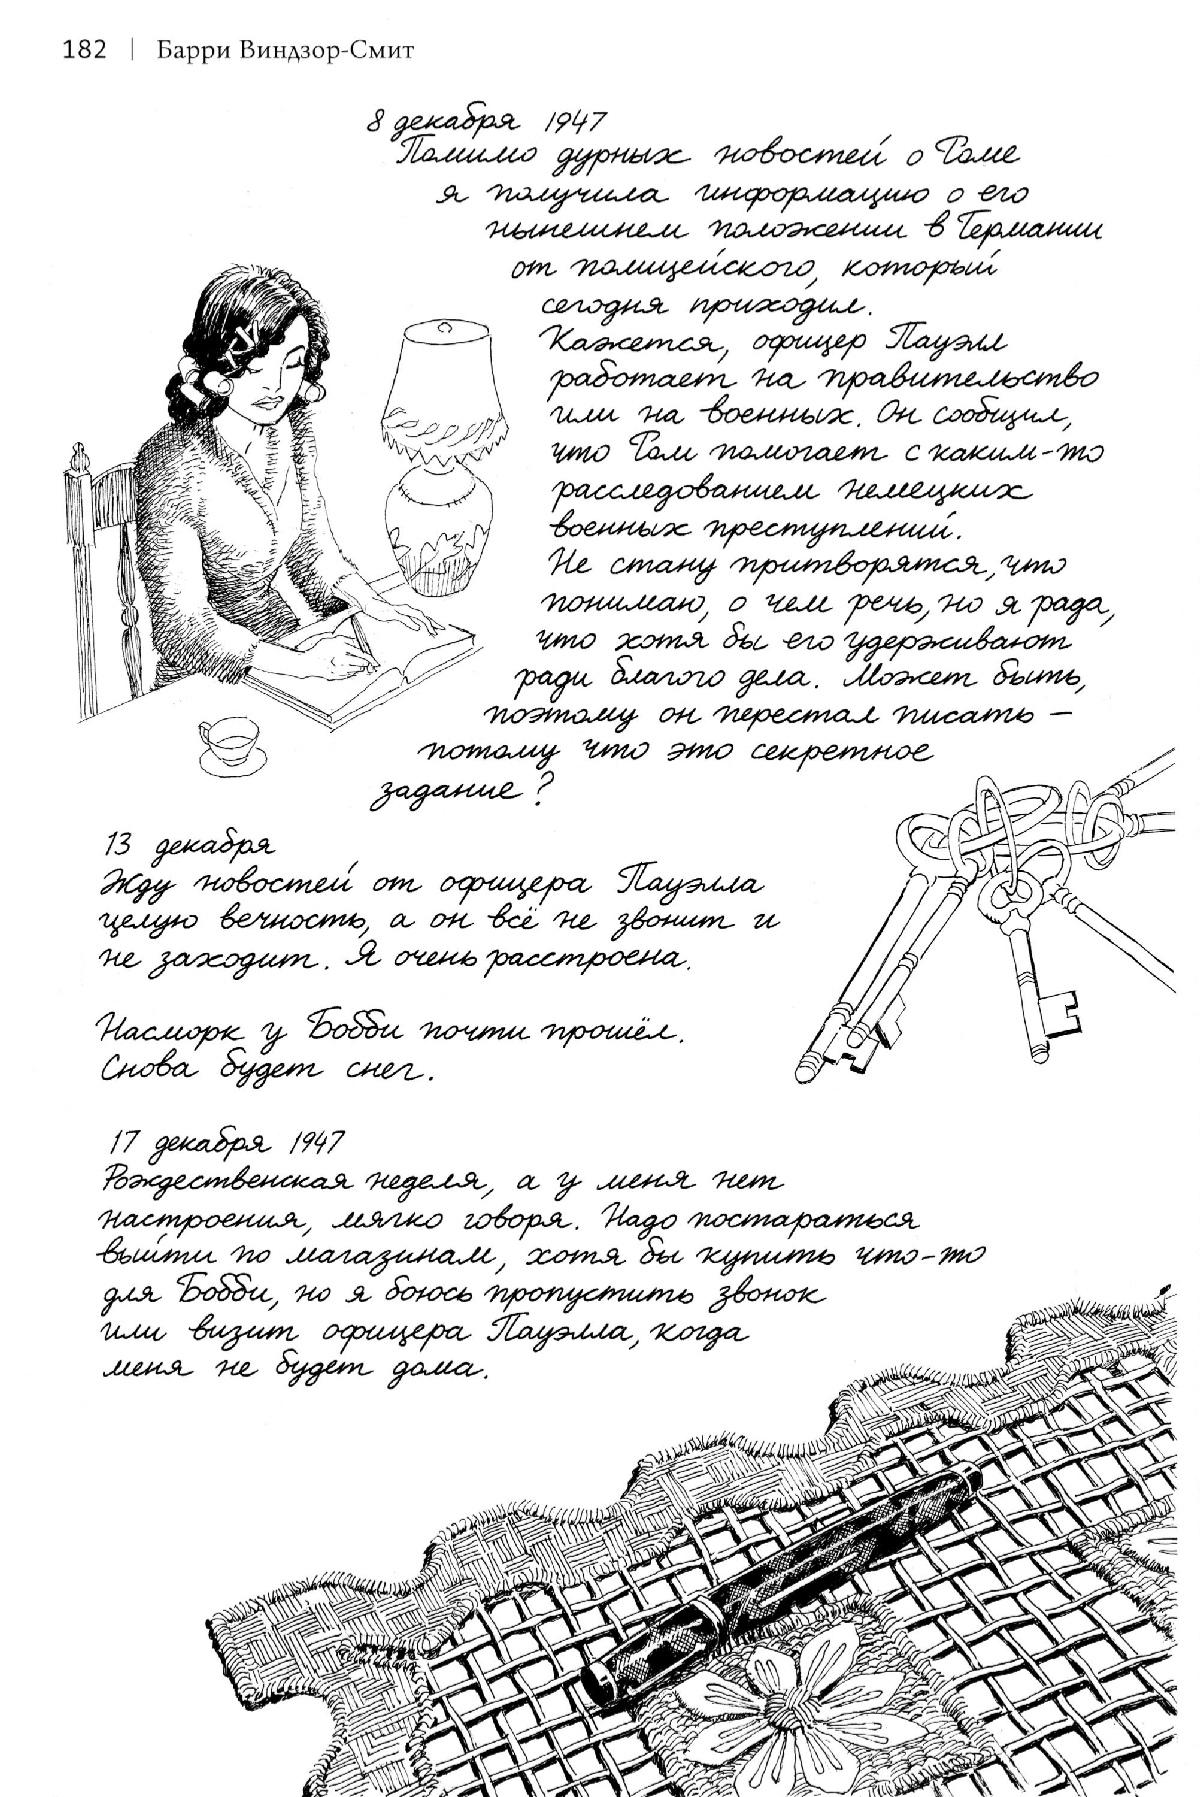 182 | Барри Виндзор-Смит
8 декабря 1947
Помимо дурных новостей о Томе
я получила информацию о его
нынешнем положении в Германии
от полицейского, который
сегодня приходил.
Кажется, офицер Пауэлл
работает на правительство
или на военных. Он сообщил,
что Том помогает с каким-то
расследованием немецких
военных преступлений.
Не стану притворятся, что
понимаю, о чем речь, но я рада,
что хотя бы его удерживают
ради благого дела. Может быть,
поэтому он перестал писать –
потому что это секретное
задание?
13 декабря
Жду новостей от офицера Пауэлла
целую вечность, а он всё не звонит и
не заходит. Я очень расстроена.
Насморк у Бобби почти прошёл.
Снова будет снег.
17 декабря 1947
Рождественская неделя, а у меня нет
настроения, мягко говоря. Надо постараться
выйти по магазинам, хотя бы купить что-то
для Бобби, но я боюсь пропустить звонок
или визит офицера Пауэлла, когда
меня не будет дома.